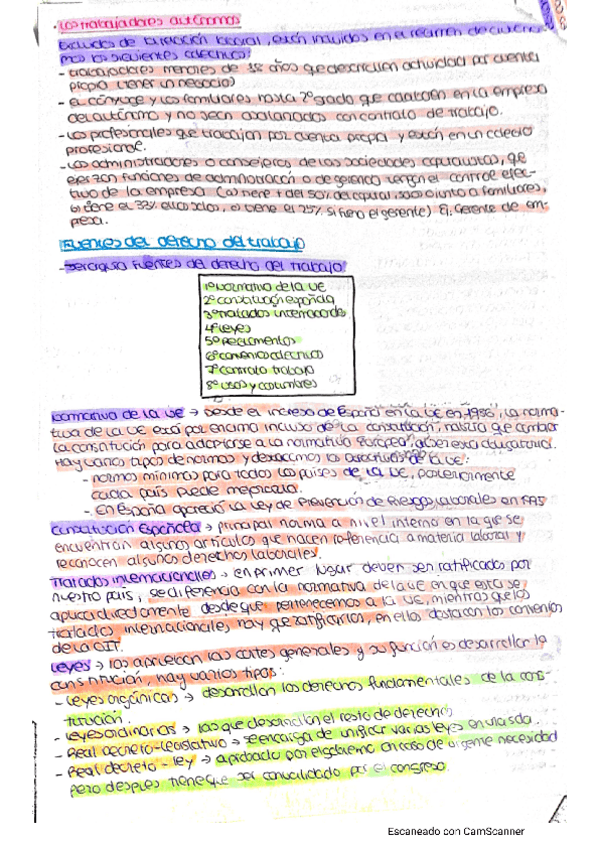 · Los trabajadores autónomos
Excluidos de la relación laboral, están incluidos en el régimen de autóno-
mos los siguientes colectivos:
- trabajadores menores de 18 años que desarrollen actividad por cuenta
propia (tener un negocio)
- El cónyuge y los familiares hasta 2º grado que trabajen en la empresa
del autónomo y no sean asalariados con contrato de trabajo.
- Los profesionales que trabajan por cuenta propia y están en un colegio
profesional.
- Los administradores o consejeros de las sociedades capitalistas, que
ejerzan funciones de administración o de gerencia tengan el control efec-
tivo de la empresa (a) tiene + del 50% del capital, solo o junto a familiares,
b) tiene el 33% ellos solos, c) tiene el 25% si fuero el gerente) Ej. Gerente de em-
presa.
Fuentes del derecho del trabajo
- Jerarquía fuentes del derecho del trabajo:
1º Normativa de la UE
2º constitución española
3º tratados internacionales
4º leyes
5º Reglamentos
6º convenios colectivos
7º contrato trabajo
8º usos y costumbres
Normativa de la UE → Desde el ingreso de España en la UE en 1986, la norma-
tiva de la UE está por encima incluso de la constitución,
la constitución para adaptarse a la normativa Europea,
Hay varios tipos de normas y destacamos las directivas de la UE:
- normas mínimas para todos los países de la UE, posteriormente
cada país puede mejorarla.
- en España apareció la ley de Prevención de Riesgos laborales en 1995
Constitución Española → principal norma a nivel interno en la que se
encuentran algunos artículos que hacen referencia a materia laboral y
reconocen algunos derechos laborales.
Tratados internacionales → en primer lugar deben ser ratificados por
nuestro país, se diferencia con la normativa de la UE en que esta se
aplica directamente desde que pertenecemos a la UE, mientras que los
tratados internacionales hay que ratificarlos, en ellos destacan los convenios
de la OIT.
Leyes → las aprueban las cortes generales y su función es desarrollar la
constitución, hay varios tipos:
- Leyes orgánicas → desarrollan los derechos fundamentales de la cons-
titución.
- Leyes ordinarias → las que desarrollan el resto de derechos
- Real decreto-legislativo → se encarga de unificar varias leyes en una sola.
- Real decreto-ley → aprobado por el gobierno en caso de urgente necesidad
pero después tiene que ser convalidado por el congreso.
Escaneado con CamScanner